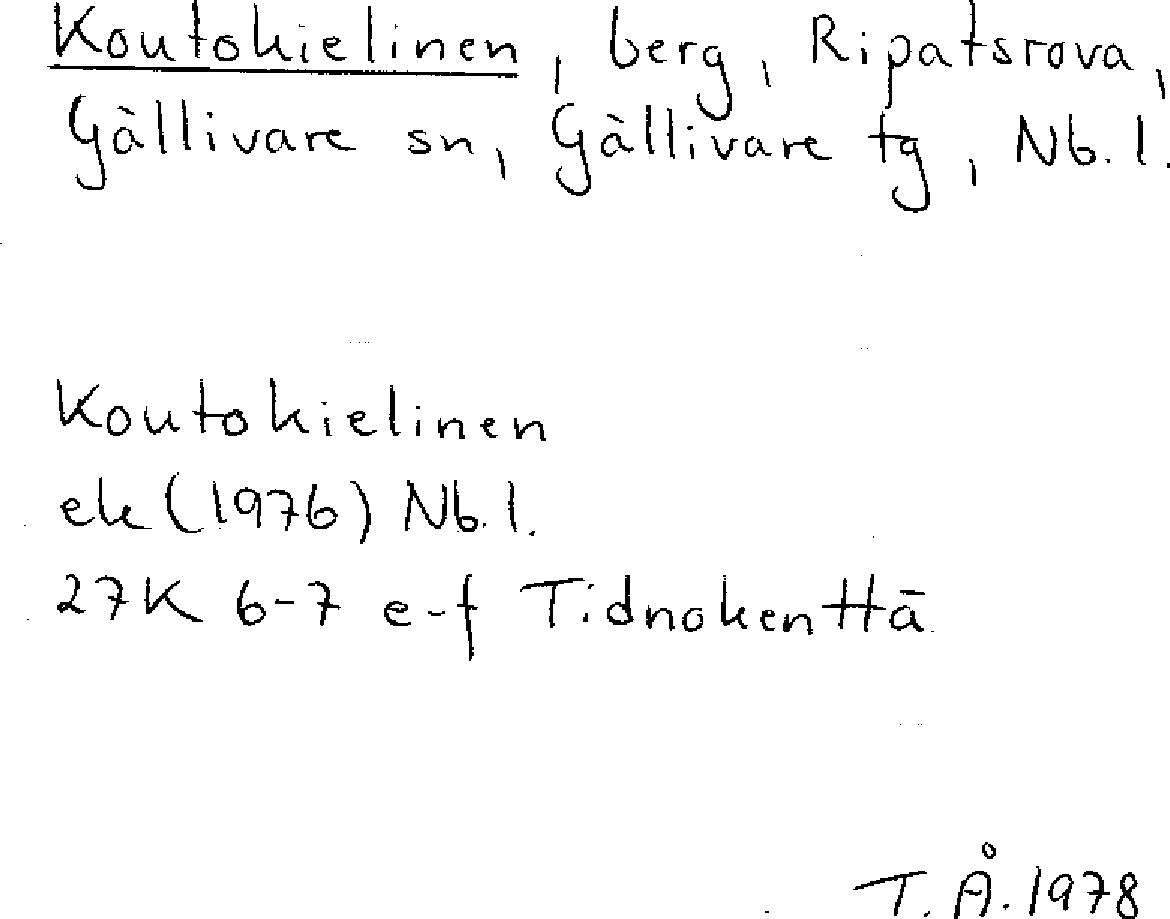 Koutokielinen, berg, Ripatsrova,
Gällivare sn, Gällivare tg, Nb. l.
Koutokielinen
ek (1976) Nb. l.
27K 6-7 e-f Tidnokenttä
T. Å. 1978